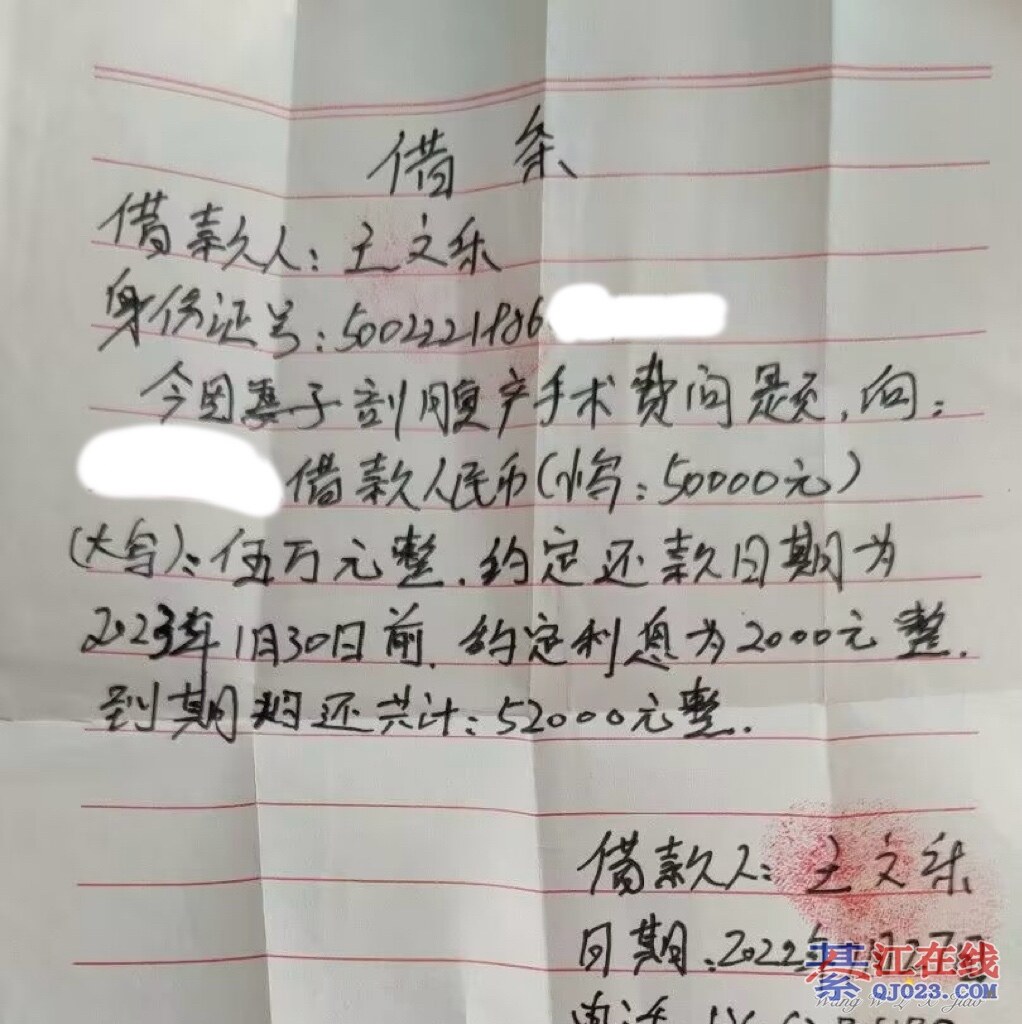 借条
借款人：王文乐
身份证号：5002221986
今因妻子剖腹产手术费问题，向：
借款人民币（小写：50000元）
（大写）：伍万元整．约定还款日期为
2023年1月30日前．约定利息为2000元整．
到期归还共计：52000元整．
借款人：王文乐
日期：2022年
綦江在线
QJ023.COM
电话